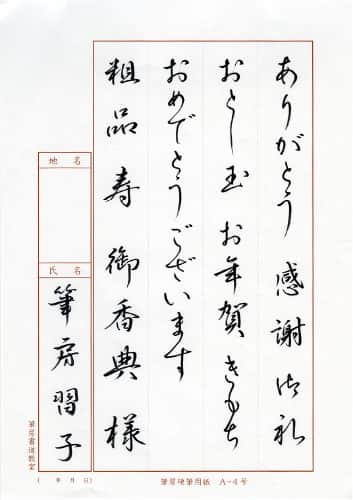 ありがとう 感謝 御礼
おとし玉 お年賀 きもち
おめでとうございます
粗品 寿 御香典 様
地名
氏名
筆房習子
筆房書道教室
( 年 月 日)
筆房硬筆用紙 A-4号